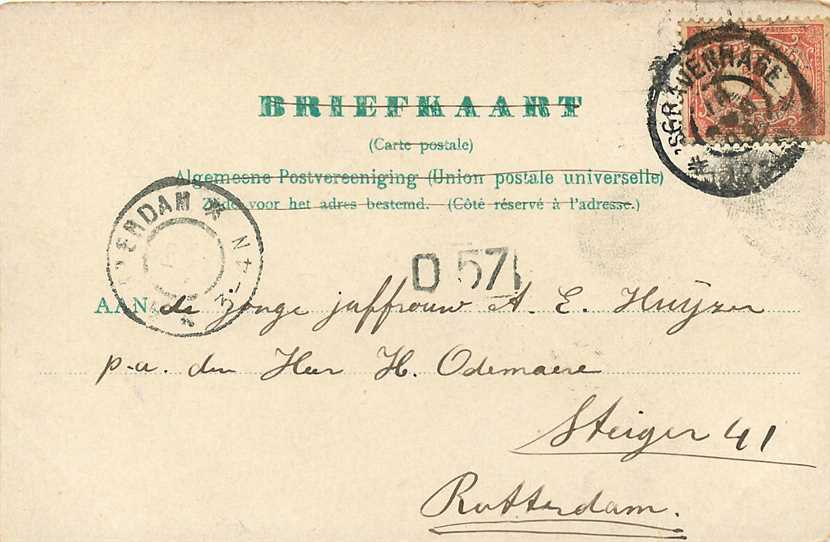 BRIEFKAART
(Carte postale)
Algemeene Postvereeniging (Union postale universelle)
Zijde voor het adres bestemd. (Côté réservé à l'adresse.)
'SGRAVENHAGE
N 4
3-4
D 57
AAN de jonge juffrouw A. E. Huÿzer
p.a. den Heer H. Odemaere
Steiger 41
Rotterdam.